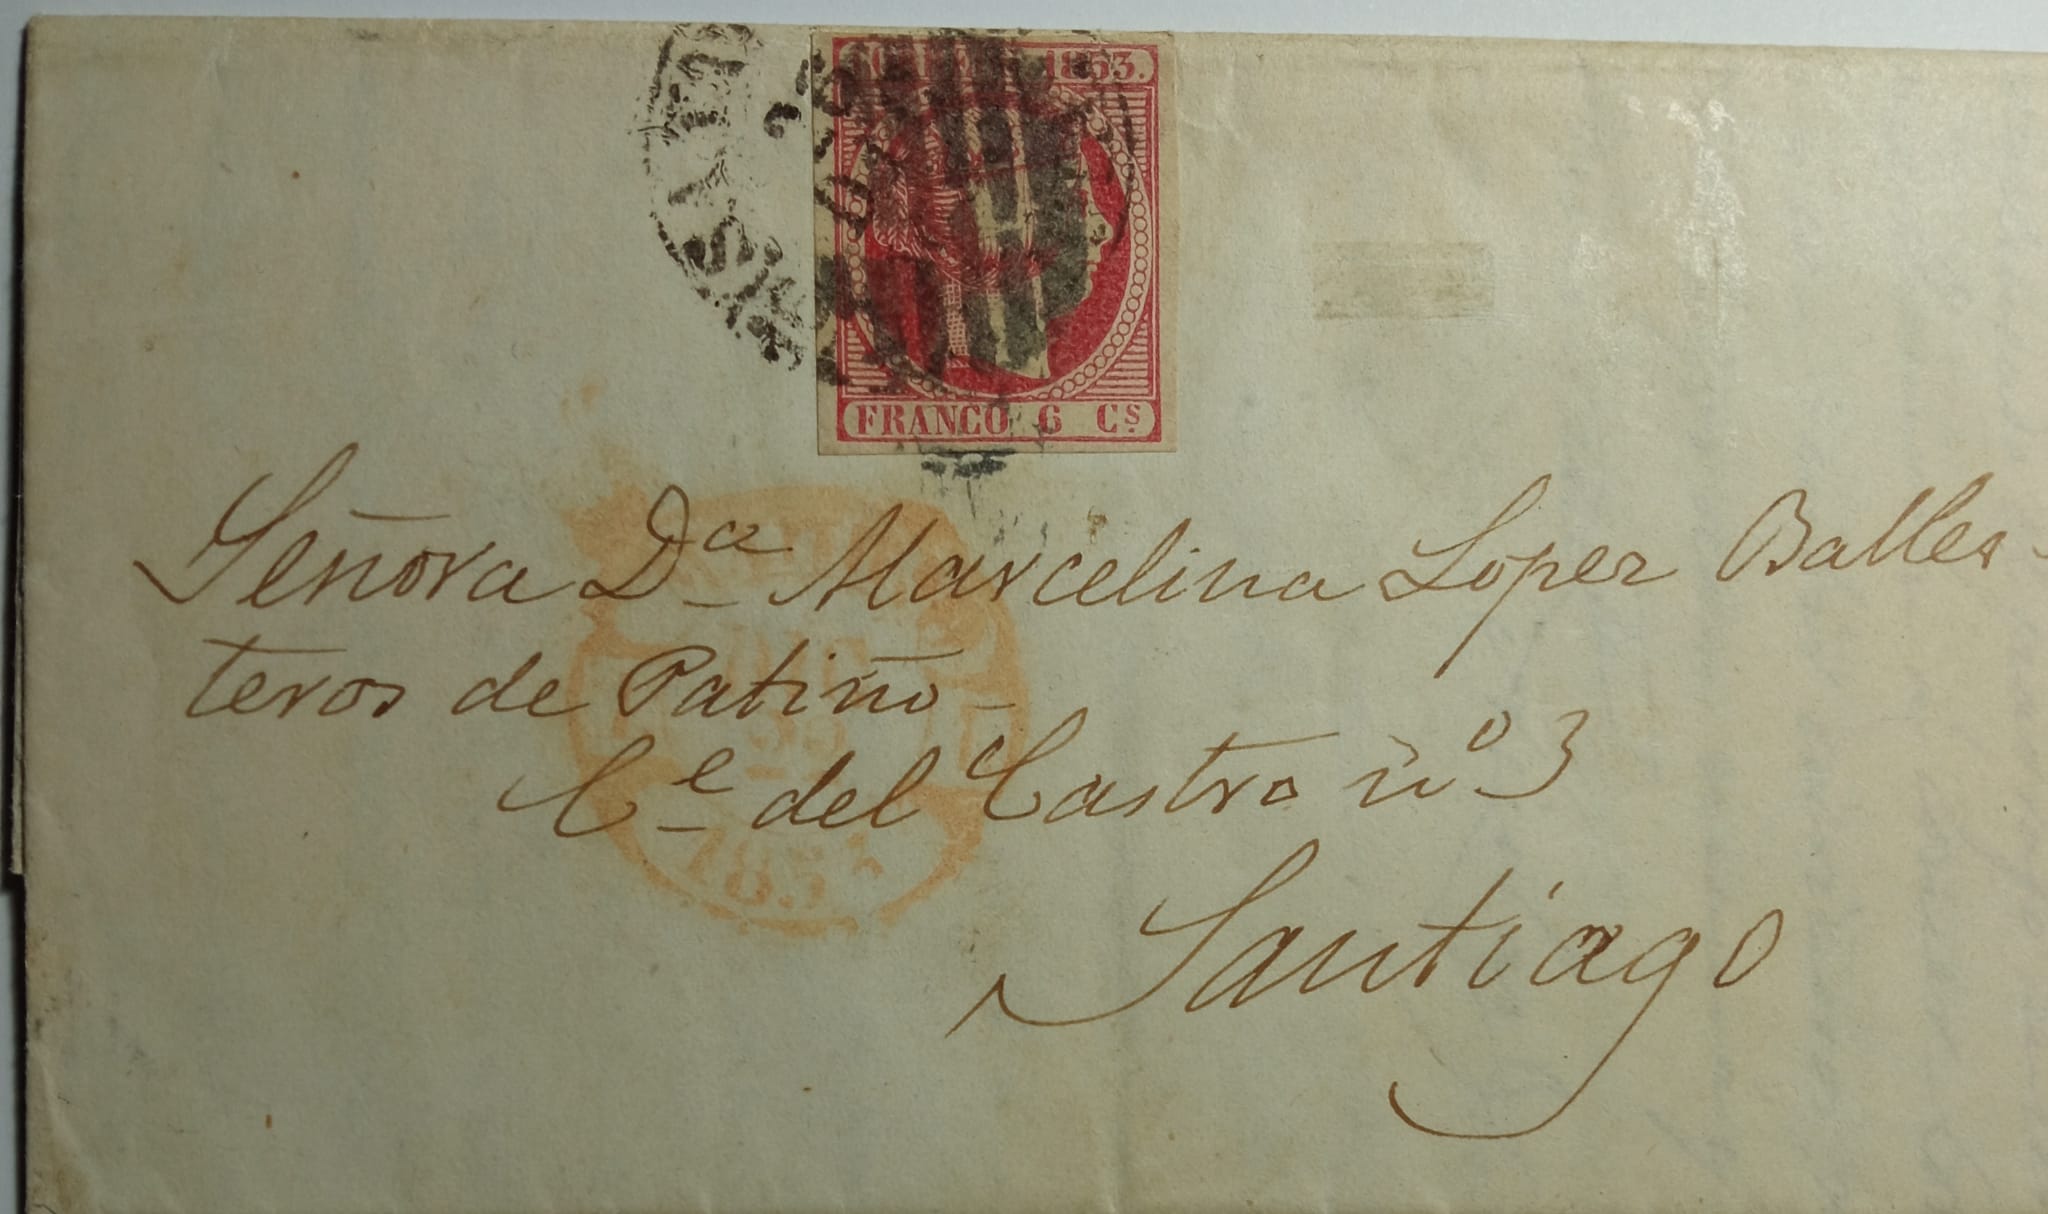 1853.
FRANCO 6 Cs.
Señora Da Marcelina Lopez Balles-
teros de Patiño
Ce del Castro no 3
Santiago
185